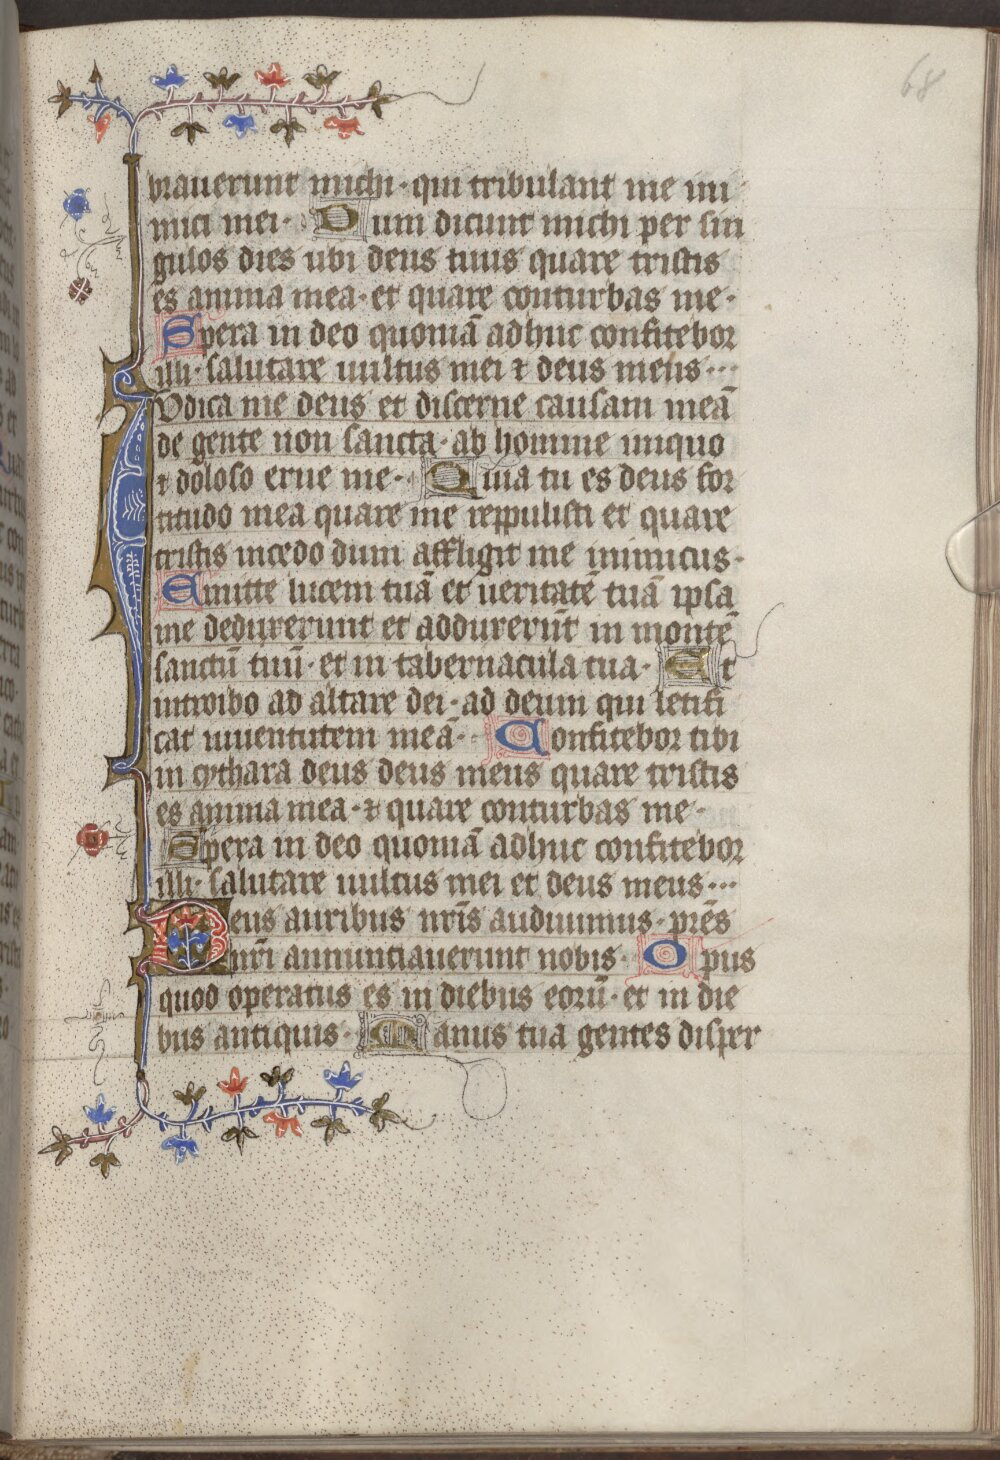 68
brauerunt michi · qui tribulant me ini
mici mei · Dum dicunt michi per sin
gulos dies ubi deus tuus quare tristis
es anima mea · et quare conturbas me ·
Spera in deo quoniā adhuc confitebor
illi · salutare uultus mei ⁊ deus meus ···
Iudica me deus et discerne causam meā
de gente non sancta · ab homine iniquo
⁊ doloso erue me · Quia tu es deus for
titudo mea quare me reppulisti et quare
tristis incedo dum affligit me inimicus ·
Emitte lucem tuā et ueritatē tuā ipsa
me deduxerunt et adduxerūt in montē
sanctū tuū · et in tabernacula tua · Et
introibo ad altare dei · ad deum qui letifi
cat iuuentutem meā · Confitebor tibi
in cythara deus deus meus quare tristis
es anima mea · ⁊ quare conturbas me ·
Spera in deo quoniā adhuc confitebor
illi · salutare uultus mei et deus meus ···
Deus auribus nr̄is audiuimus · pr̄es
nr̄i annuntiauerunt nobis · Opus
quod operatus es in diebus eorū · et in die
bus antiquis · Manus tua gentes disper